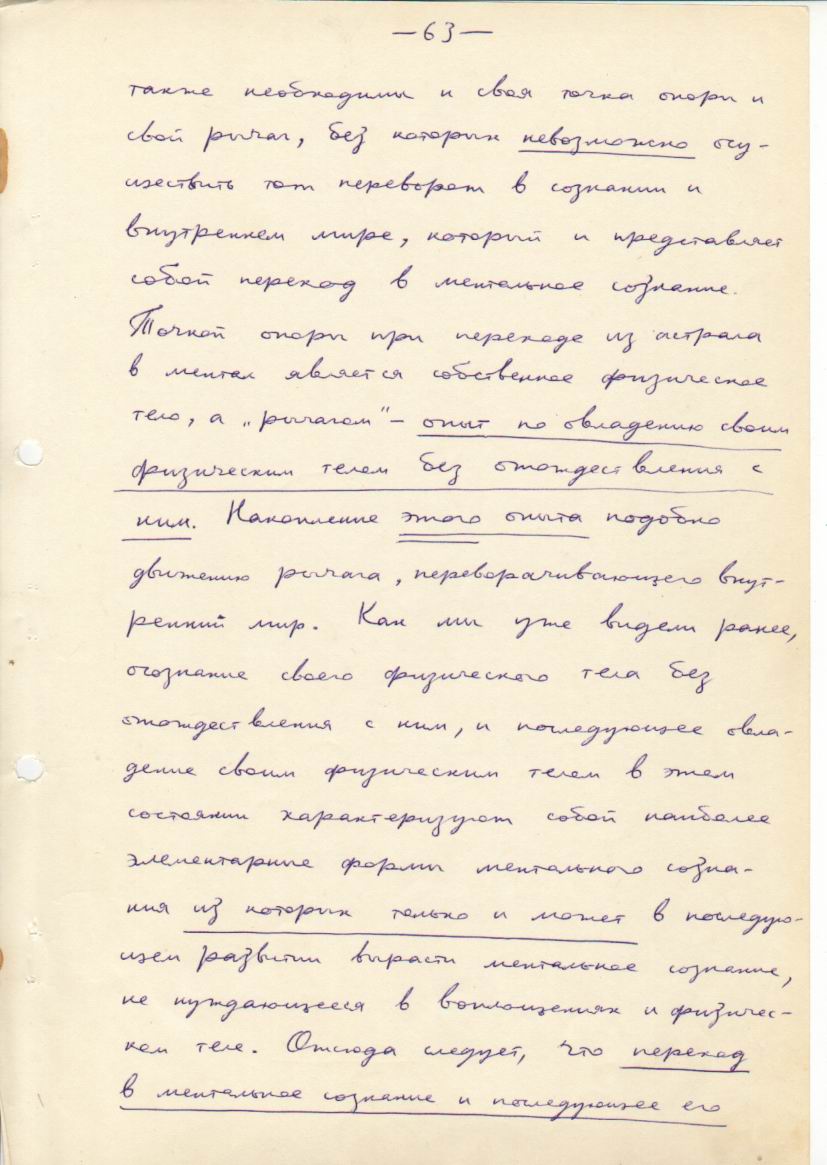 —63—
также необходимы и своя точка опоры и
свой рычаг, без которых невозможно осу-
ществить тот переворот в сознании и
внутреннем мире, который и представляет
собой переход в ментальное сознание.
Точкой опоры при переходе из астрала
в ментал является собственное физическое
тело, а „рычагом“ – опыт по овладению своим
физическим телом без отождествления с
ним. Накопление этого опыта подобно
движению рычага, переворачивающего внут-
ренний мир. Как мы уже видели ранее,
осознание своего физического тела без
отождествления с ним, и последующее овла-
дение своим физическим телом в этом
состоянии характеризуют собой наиболее
элементарные формы ментального созна-
ния из которых только и может в последую-
щем развитии вырасти ментальное сознание,
не нуждающееся в воплощениях и физичес-
ком теле. Отсюда следует, что переход
в ментальное сознание и последующее его